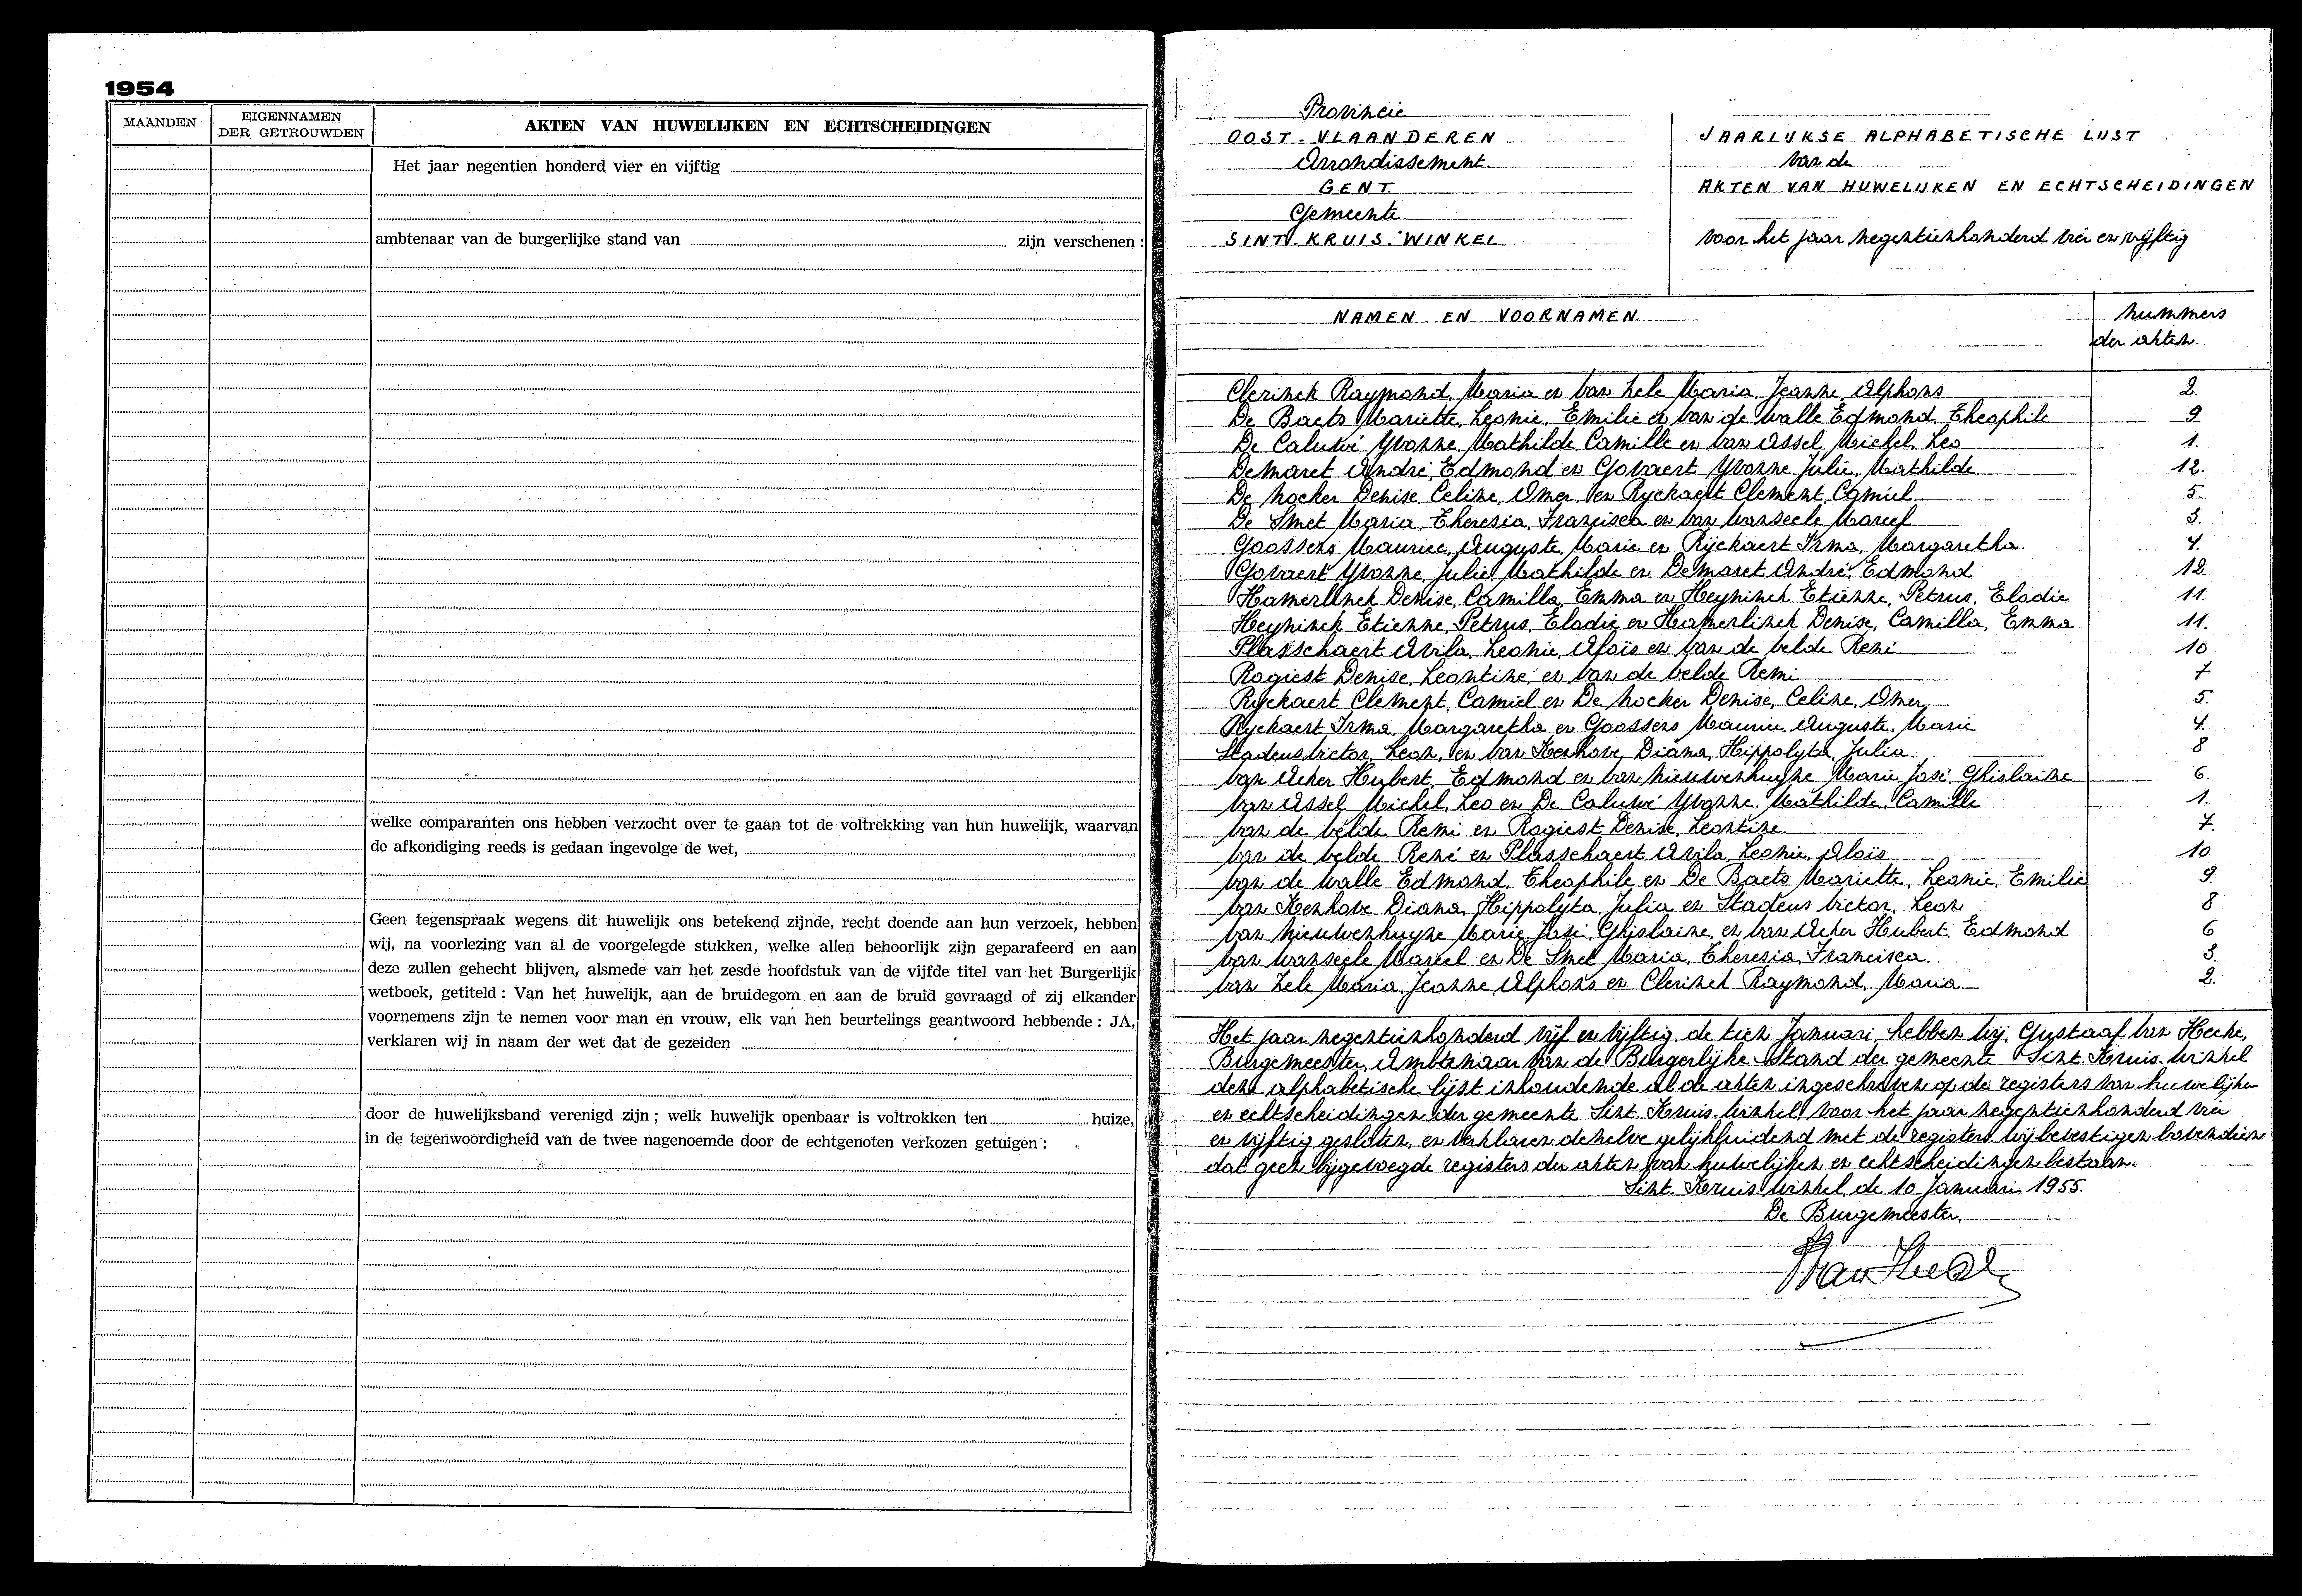 1954
MAANDEN
EIGENNAMEN
DER GETROUWDEN
AKTEN VAN HUWELIJKEN EN ECHTSCHEIDINGEN
Het jaar negentien honderd vier en vijftig
ambtenaar van de burgerlijke stand van zijn verschenen :
welke comparanten ons hebben verzocht over te gaan tot de voltrekking van hun huwelijk, waarvan
de afkondiging reeds is gedaan ingevolge de wet,
Geen tegenspraak wegens dit huwelijk ons betekend zijnde, recht doende aan hun verzoek, hebben
wij, na voorlezing van al de voorgelegde stukken, welke allen behoorlijk zijn geparafeerd en aan
deze zullen gehecht blijven, alsmede van het zesde hoofdstuk van de vijfde titel van het Burgerlijk
wetboek, getiteld : Van het huwelijk, aan de bruidegom en aan de bruid gevraagd of zij elkander
voornemens zijn te nemen voor man en vrouw, elk van hen beurtelings geantwoord hebbende : JA,
verklaren wij in naam der wet dat de gezeiden
door de huwelijksband verenigd zijn ; welk huwelijk openbaar is voltrokken ten huize,
in de tegenwoordigheid van de twee nagenoemde door de echtgenoten verkozen getuigen :
Provincie
OOST-VLAANDEREN
Arrondissement
GENT
Gemeente
SINT-KRUIS-WINKEL
JAARLIJKSE ALPHABETISCHE LIJST
van de
AKTEN VAN HUWELIJKEN EN ECHTSCHEIDINGEN
voor het jaar negentienhonderd vier en vijftig
NAMEN EN VOORNAMEN
nummers
der akten.
Clerinck Raymond, Maria en Van Hele Maria, Jeanne, Alphons 2.
De Baets Mariette, Leonie, Emilie en Van de Walle Edmond, Theophile 9.
De Caluwé Yvonne, Mathilde, Camille en Van Assel, Michel, Leo 1.
Demaret André, Edmond en Govaert Yvonne, Julie, Mathilde 12.
De Nocker Denise, Celine, Omer, en Ryckaert Clement, Camiel 5.
De Smet Maria, Theresia, Francisca en Van Wanseele Marcel 3.
Goossens Maurice, Auguste, Marie en Rijckaert Irma, Margaretha. 4.
Govaert Yvonne, Julie, Mathilde en Demaret André, Edmond 12.
Hamerlinck Denise, Camilla, Emma en Heyninck Etienne, Petrus, Elodie 11.
Heyninck Etienne, Petrus, Elodie en Hamerlinck Denise, Camilla, Emma 11.
Plasschaert Avila, Leonie, Aloïs en Van de Velde René 10
Rogiest Denise, Leontine, en Van de Velde Remi 7
Ryckaert Clement, Camiel en De Nocker Denise, Celine, Omer, 5.
Ryckaert Irma, Margaretha en Goossens Maurice, Auguste, Marie 4.
Stadeus Victor, Leon, en Van Kerkhove Diana, Hippolyta, Julia. 8
Van Acker Hubert, Edmond en Van Nieuwenhuyse Marie José, Ghislaine 6.
Van Assel Michel, Leo en De Caluwé Yvonne, Mathilde, Camille 1.
Van de Velde Remi en Rogiest Denise, Leontine 7.
Van de Velde René en Plasschaert Avila, Leonie, Aloïs 10
Van de Walle Edmond, Theophile en De Baets Mariette, Leonie, Emilie 9.
Van Kerkhove Diana, Hippolyta, Julia en Stadeus Victor, Leon 8
Van Nieuwenhuyse Marie, José, Ghislaine, en Van Acker Hubert, Edmond 6
Van Wanseele Marcel en De Smet Maria, Theresia, Francisca. 3.
Van Hele Maria, Jeanne, Alphons en Clerinck Raymond, Maria 2.
Het jaar negentienhonderd vijf en vijftig, de tien Januari, hebben wij, Gustaaf Van Hecke,
Burgemeester, Ambtenaar van de Burgerlijke-stand der gemeente Sint-Kruis-Winkel
deze alphabetische lijst inhoudende al de akten ingeschreven op de registers van huwelijken
en echtscheidingen der gemeente Sint-Kruis-Winkel voor het jaar negentienhonderd vier
en vijftig gesloten, en verklaren dezelve gelijkluidend met de registers wij bevestigen bovendien
dat geen bijgevoegde registers der akten van huwelijken en echtscheidingen bestaan.
Sint-Kruis-Winkel, de 10 Januari 1955.
De Burgemeester,